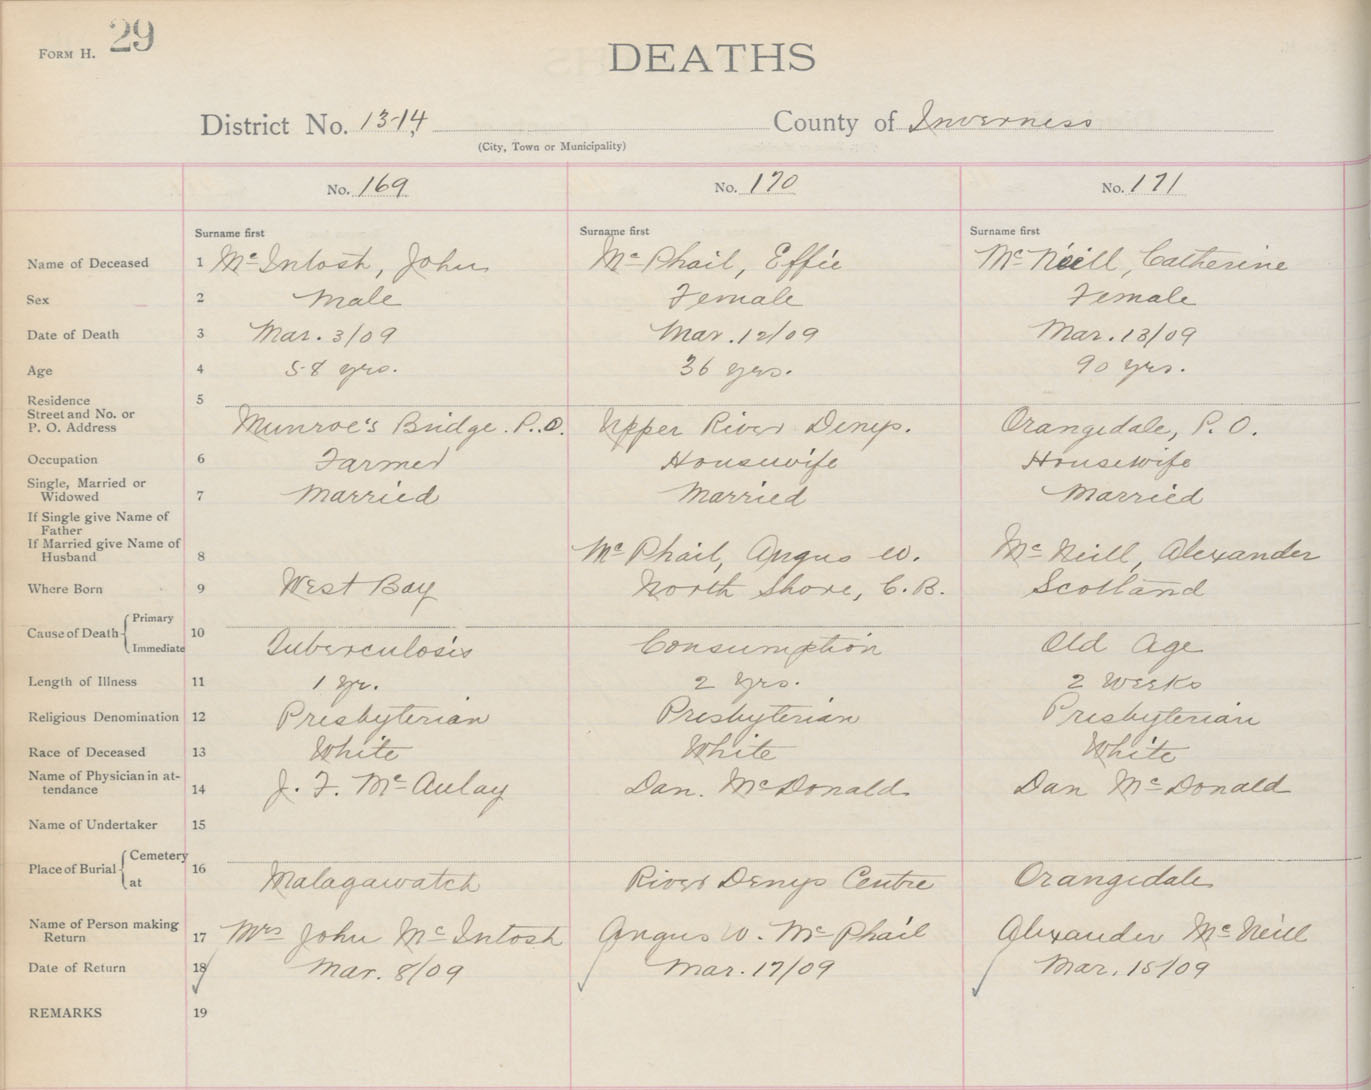 FORM H. 29
DEATHS
District No. 13-14, County of Inverness
(City, Town or Municipality)
No. 169 No. 170 No. 171
Surname first Surname first Surname first
Name of Deceased 1 McIntosh, John McPhail, Effie McNeill, Catherine
Sex 2 Male Female Female
Date of Death 3 Mar. 3/09 Mar. 12/09 Mar. 13/09
Age 4 58 yrs. 36 yrs. 90 yrs.
Residence 5
Street and No. or
P. O. Address Munroe's Bridge. P.O. Upper River Denys. Orangedale, P. O.
Occupation 6 Farmer Housewife Housewife
Single, Married or
Widowed 7 Married Married Married
If Single give Name of
Father
If Married give Name of
Husband 8 McPhail, Angus W. McNeill, Alexander
Where Born 9 West Bay North Shore, C. B. Scotland
Cause of Death { Primary 10
Immediate Tuberculosis Consumption Old Age
Length of Illness 11 1 yr. 2 yrs. 2 weeks
Religious Denomination 12 Presbyterian Presbyterian Presbyterian
Race of Deceased 13 White White White
Name of Physician in at-
tendance 14 J. F. McAulay Dan. McDonald Dan McDonald
Name of Undertaker 15
Place of Burial { Cemetery 16
at Malagawatch River Denys Centre Orangedale
Name of Person making
Return 17 Mrs John McIntosh Angus W. McPhail Alexander McNeill
Date of Return 18 Mar. 8/09 Mar. 17/09 Mar. 15/09
REMARKS 19